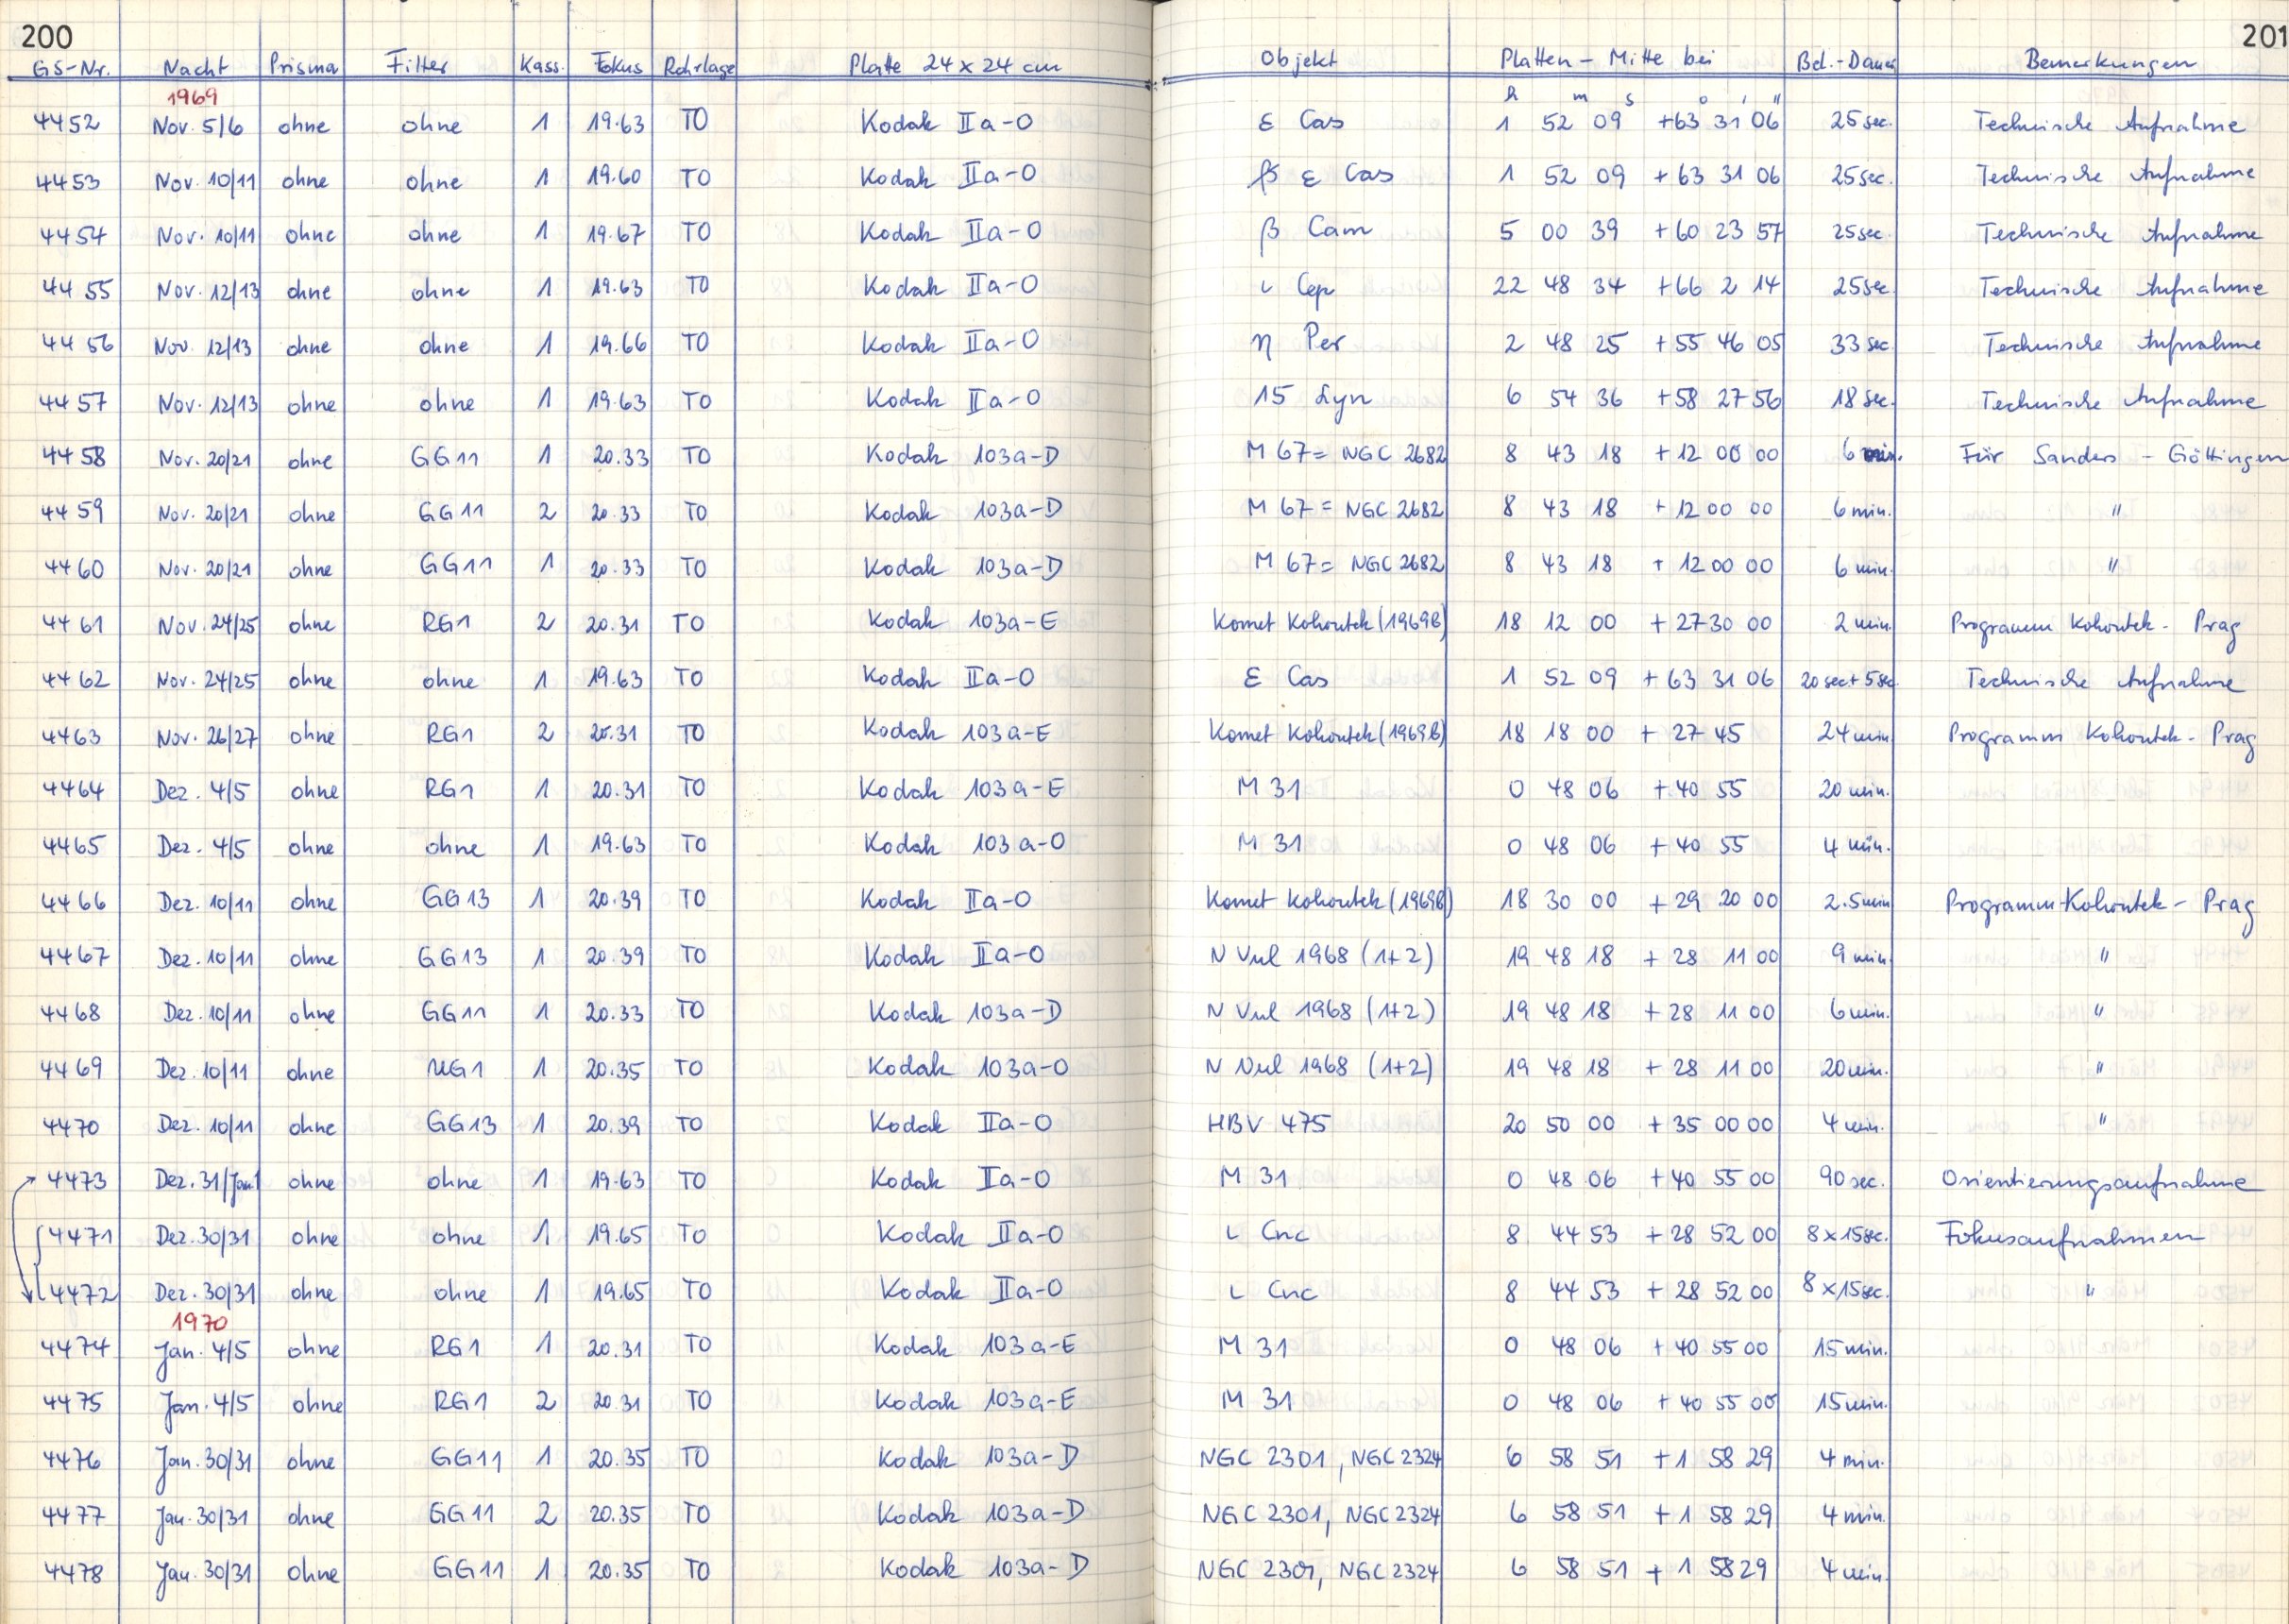 200 201
GS-Nr. Nacht Prisma Filter Kass. Fokus Rohrlage Platte 24 x 24 cm Objekt Platten - Mitte bei Bel.-Dauer Bemerkungen
1969 h m s ° ' "
4452 Nov. 5/6 ohne ohne 1 19.63 TO Kodak IIa-O ε Cas 1 52 09 +63 31 06 25 sec. Technische Aufnahme
4453 Nov. 10/11 ohne ohne 1 19.60 TO Kodak IIa-O β ε Cas 1 52 09 +63 31 06 25 sec. Technische Aufnahme
4454 Nov. 10/11 ohne ohne 1 19.67 TO Kodak IIa-O β Cam 5 00 39 +60 23 57 25 sec. Technische Aufnahme
4455 Nov. 12/13 ohne ohne 1 19.63 TO Kodak IIa-O ι Cep 22 48 34 +66 2 14 25 sec Technische Aufnahme
4456 Nov. 12/13 ohne ohne 1 19.66 TO Kodak IIa-O η Per 2 48 25 +55 46 05 33 sec Technische Aufnahme
4457 Nov. 12/13 ohne ohne 1 19.63 TO Kodak IIa-O 15 Lyn 6 54 36 +58 27 56 18 sec. Technische Aufnahme
4458 Nov. 20/21 ohne GG11 1 20.33 TO Kodak 103a-D M 67 = NGC 2682 8 43 18 +12 00 00 6 min. Für Sanders - Göttingen
4459 Nov. 20/21 ohne GG11 2 20.33 TO Kodak 103a-D M 67 = NGC 2682 8 43 18 +12 00 00 6 min. "
4460 Nov. 20/21 ohne GG11 1 20.33 TO Kodak 103a-D M 67 = NGC 2682 8 43 18 +12 00 00 6 min. "
4461 Nov. 24/25 ohne RG1 2 20.31 TO Kodak 103a-E Komet Kohoutek (1969b) 18 12 00 +27 30 00 2 min. Programm Kohoutek - Prag
4462 Nov. 24/25 ohne ohne 1 19.63 TO Kodak IIa-O ε Cas 1 52 09 +63 31 06 20 sec + 5 sec. Technische Aufnahme
4463 Nov. 26/27 ohne RG1 2 20.31 TO Kodak 103a-E Komet Kohoutek (1969b) 18 18 00 +27 45 24 min Programm Kohoutek - Prag
4464 Dez. 4/5 ohne RG1 1 20.31 TO Kodak 103a-E M 31 0 48 06 +40 55 20 min.
4465 Dez. 4/5 ohne ohne 1 19.63 TO Kodak 103a-O M 31 0 48 06 +40 55 4 min.
4466 Dez. 10/11 ohne GG13 1 20.39 TO Kodak IIa-O Komet Kohoutek (1969b) 18 30 00 +29 20 00 2.5 min Programm-Kohoutek - Prag
4467 Dez. 10/11 ohne GG13 1 20.39 TO Kodak IIa-O N Vul 1968 (1+2) 19 48 18 +28 11 00 9 min "
4468 Dez. 10/11 ohne GG11 1 20.33 TO Kodak 103a-D N Vul 1968 (1+2) 19 48 18 +28 11 00 6 min. "
4469 Dez. 10/11 ohne UG1 1 20.35 TO Kodak 103a-O N Vul 1968 (1+2) 19 48 18 +28 11 00 20 min. "
4470 Dez. 10/11 ohne GG13 1 20.39 TO Kodak IIa-O HBV 475 20 50 00 +35 00 00 4 min. "
4473 Dez. 31/Jan 1 ohne ohne 1 19.63 TO Kodak IIa-O M 31 0 48 06 +40 55 00 90 sec. Orientierungsaufnahme
4471 Dez. 30/31 ohne ohne 1 19.65 TO Kodak IIa-O ι Cnc 8 44 53 +28 52 00 8 x 15 sec. Fokusaufnahmen
4472 Dez. 30/31 ohne ohne 1 19.65 TO Kodak IIa-O ι Cnc 8 44 53 +28 52 00 8 x 15 sec. "
1970
4474 Jan. 4/5 ohne RG1 1 20.31 TO Kodak 103a-E M 31 0 48 06 +40 55 00 15 min.
4475 Jan. 4/5 ohne RG1 2 20.31 TO Kodak 103a-E M 31 0 48 06 +40 55 00 15 min.
4476 Jan. 30/31 ohne GG11 1 20.35 TO Kodak 103a-D NGC 2301, NGC 2324 6 58 51 +1 58 29 4 min.
4477 Jan. 30/31 ohne GG11 2 20.35 TO Kodak 103a-D NGC 2301, NGC 2324 6 58 51 +1 58 29 4 min.
4478 Jan. 30/31 ohne GG11 1 20.35 TO Kodak 103a-D NGC 2301, NGC 2324 6 58 51 +1 58 29 4 min.